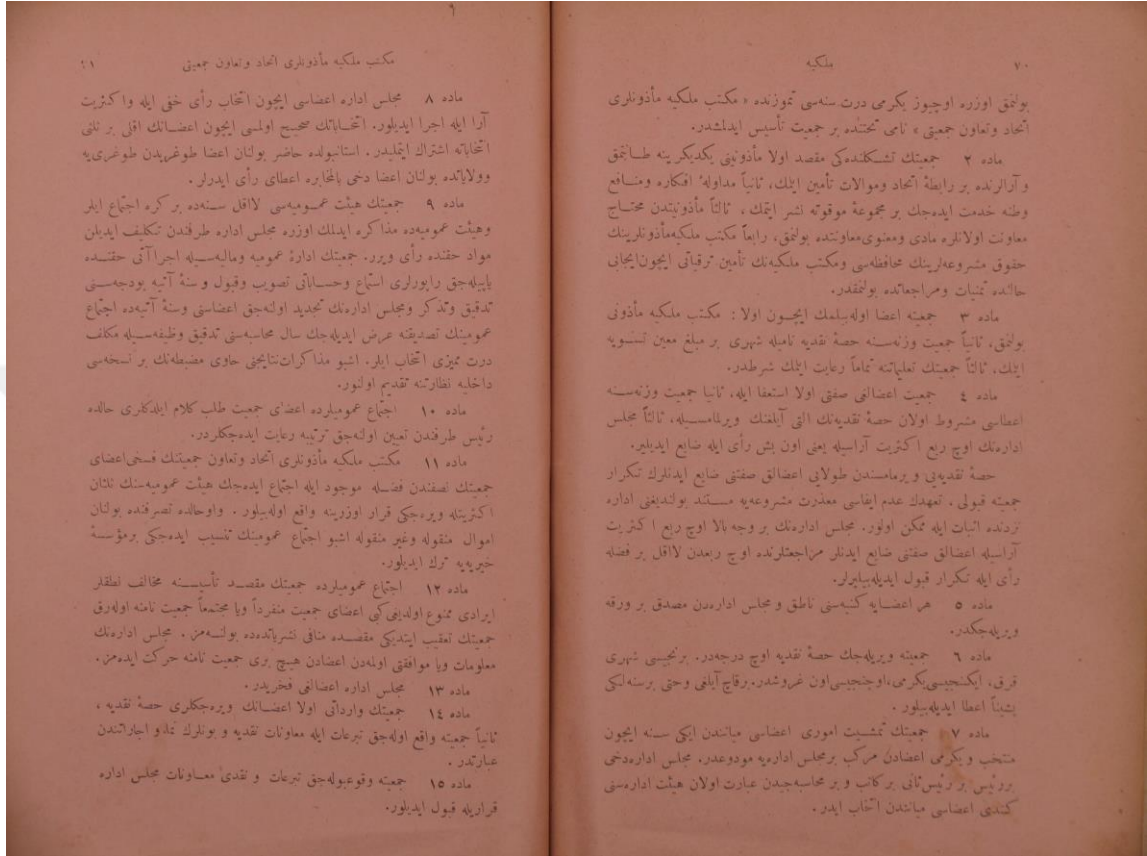 ٧٠
ملكيه
بولنمق اوزره اوچيوز يكرمى درت سنه‌سى تموزنده « مكتب ملكيه مأذونلرى
اتحاد وتعاون جمعيتى » نامى تحتنده بر جمعيت تأسيس ايدلمشدر.
ماده ٢ جمعيتك تشكلنده‌كى مقصد اولا مأذونينى يكديكرينه طــانيتمق
و آرالرنده بر رابطهٔ اتحاد وموالات تأمين ايتمك، ثانياً مداولهٔ افكاره ومنــافع
وطنه خدمت ايده‌جك بر مجموعهٔ موقوته نشر ايتمك ، ثالثاً مأذونيتدن محتــاج
معاونت اولانلره مادى ومعنوى معاونتده بولنمق، رابعاً مكتب ملكيه مأذونلرينك
حقوق مشروعه‌لرينك محافظه‌سى ومكتب ملكيه‌نك تأمين ترقياتى ايچون ايجابى
حالنده تمنيات ومراجعاتده بولنمقدر.
ماده ٣ جمعيته اعضا اوله‌بيلمك ايچــون اولا : مكتب ملكيه مأذونى
بولنمق، ثانياً جمعيت وزنه‌ســنه حصهٔ نقديه ناميله شهرى بر مبلغ معين تســويه
ايتمك، ثالثاً جمعيتك تعليماتنه تماماً رعايت ايتمك شرطدر.
ماده ٤ جمعيت اعضالغى صفتى اولا استعفا ايله، ثانيا جمعيت وزنه‌ســنه
اعطاسى مشروط اولان حصهٔ نقديه‌نك التى آيلغنك ويرلمامســيله، ثالثاً مجلس
اداره‌نك اوچ ربع اكثريت آراسيله يعنى اون بش رأى ايله ضايع ايديلير.
حصهٔ نقديه‌يى ويرمامسندن طولايى اعضالق صفتنى ضايع ايدنلرك تكرار
جمعيته قبولى ، تعهدك عدم ايفاسى معذرت مشروعه‌يه مســتند بولنديغنى اداره
نزدنده اثبات ايله ممكن اولور. مجلس اداره‌نك بر وجه بالا اوچ ربع اكثريت
آراسيله اعضالق صفتنى ضايع ايدنلر مراجعتلرنده اوچ ربعدن لااقل بر فضله
رأى ايله تكرار قبول ايديله‌بيليرلر.
ماده ٥ هر اعضــايه كنيه‌سنى ناطق و مجلس اداره‌دن مصدق بر ورقه
ويريله‌جكدر.
ماده ٦ جمعيته ويريله‌جك حصهٔ نقديه اوچ درجه‌در. برنجيسى شهرى
قرق، ايكنجيسى يكرمى، اوچنجيسى اون غروشدر. برقاچ آيلغى وحتى برسنه‌لكى
پشيناً اعطا ايديله‌بيلور .
ماده ٧ جمعيتك تمشــيت امورى اعضاسى مياننده‌ن ايكى ســنه ايچون
منتخب و يكرمى اعضادن مركب برمجلس اداره‌يه مودوعدر. مجلس اداره‌دخى
بررئيس بر رئيس ثانى بر كاتب و بر محاسبه‌جيدن عبارت اولان هيئت اداره‌سنى
كندى اعضاسى مياننده‌ن انتخاب ايدر .
مكتب ملكيه مأذونلرى اتحاد وتعاون جمعيتى
ماده ٨ مجلس اداره اعضاسى ايچون انتخاب رأى خفى ايله واكثريت
آرا ايله اجرا ايديلور. انتخــاباتك صحيح اولمسى ايچون اعضــانك اقلى بر ثلثى
انتخاباته اشتراك ايتمليدر. استانبولده حاضر بولنان اعضا طوغريدن طوغرى‌يه
وولاياتده بولنان اعضا دخى بالمخابره اعطاى رأى ايدرلر .
ماده ٩ جمعيتك هيئت عمــوميه‌سى لااقل ســنه‌ده بر كره اجتماع ايلر
وهيئت عموميه‌ده مذاكره ايدلمك اوزره مجلس اداره طرفندن تكليف ايديلن
مواد حقنده رأى ويرر. جمعيتك ادارهٔ عموميه وماليه‌ســيله اجراآتى حقنــده
ياپيله‌جق راپورلرى استماع وحســاباتى تصويب وقبول و سنهٔ آتيه بودجه‌ســنى
تدقيق وتذكر ومجلس اداره‌نك تجديد اولنه‌جق اعضاسنى وسنهٔ آتيه‌ده اجتماع
عمومينك تصديقنه عرض ايديله‌جك سال محاسبه‌سنى تدقيق وظيفه‌ســيله مكلف
درت مميزى انتخاب ايلر. اشبو مذاكرات نتايجنى حاوى مضبطه‌نك بر نسخه‌سى
داخليه نظارتنه تقديم اولنور.
ماده ١٠ اجتماع عموميلرده اعضاى جمعيت طلب كلام ايلدكلرى حالده
رئيس طرفندن تعيين اولنه‌جق ترتيبه رعايت ايده‌جكلردر.
ماده ١١ مكتب ملكيه مأذونلرى اتحاد وتعاون جمعيتنك فسخى اعضاى
جمعيتك نصفندن فضــله موجود ايله اجتماع ايده‌جك هيئت عموميه‌سنك ثلثان
اكثريتله ويره‌جكى قرار اوزرينه واقع اوله‌بيلور . واوحالده تصرفنده بولنان
اموال منقوله وغير منقوله اشبو اجتماع عمومينك تنسيب ايده‌جكى برمؤسسهٔ
خيريه‌يه ترك ايديلور.
ماده ١٢ اجتماع عموميلرده جمعيتك مقصــد تأسيســنه مخالف نطقلر
ايرادى ممنوع اولديغى كبى اعضاى جمعيت منفرداً ويا مجتمعاً جمعيت نامنه اوله‌رق
جمعيتك تعقيب ايتديكى مقصــده منافى نشرياتده‌ده بولنــه‌مز . مجلس اداره‌نك
معلومات ويا موافقتى اولمه‌دن اعضادن هيــچ برى جمعيت نامنه حركت ايده‌مز.
ماده ١٣ مجلس اداره اعضالغى فخريدر .
ماده ١٤ جمعيتك وارداتى اولا اعضــانك ويره‌جكلرى حصهٔ نقديه ،
ثانياً جمعيته واقع اوله‌جق تبرعات ايله معاونات نقديه و بونلرك نما و اجاراتندن
عبارتدر .
ماده ١٥ جمعيته وقوعبوله‌جق تبرعات و نقدى معــاونات مجلس اداره
قراريله قبول ايديلور.